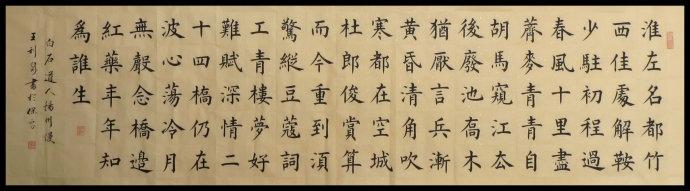 淮左名都竹
西佳處解鞍
少駐初程過
春風十里盡
薺麥青青自
胡馬窺江去
後廢池喬木
猶厭言兵漸
黃昏清角吹
寒都在空城
杜郎俊賞算
而今重到須
驚縱豆蔻詞
工青樓夢好
難賦深情二
十四橋仍在
波心蕩冷月
無聲念橋邊
紅藥年年知
爲誰生
白石道人揚州慢
王利書於